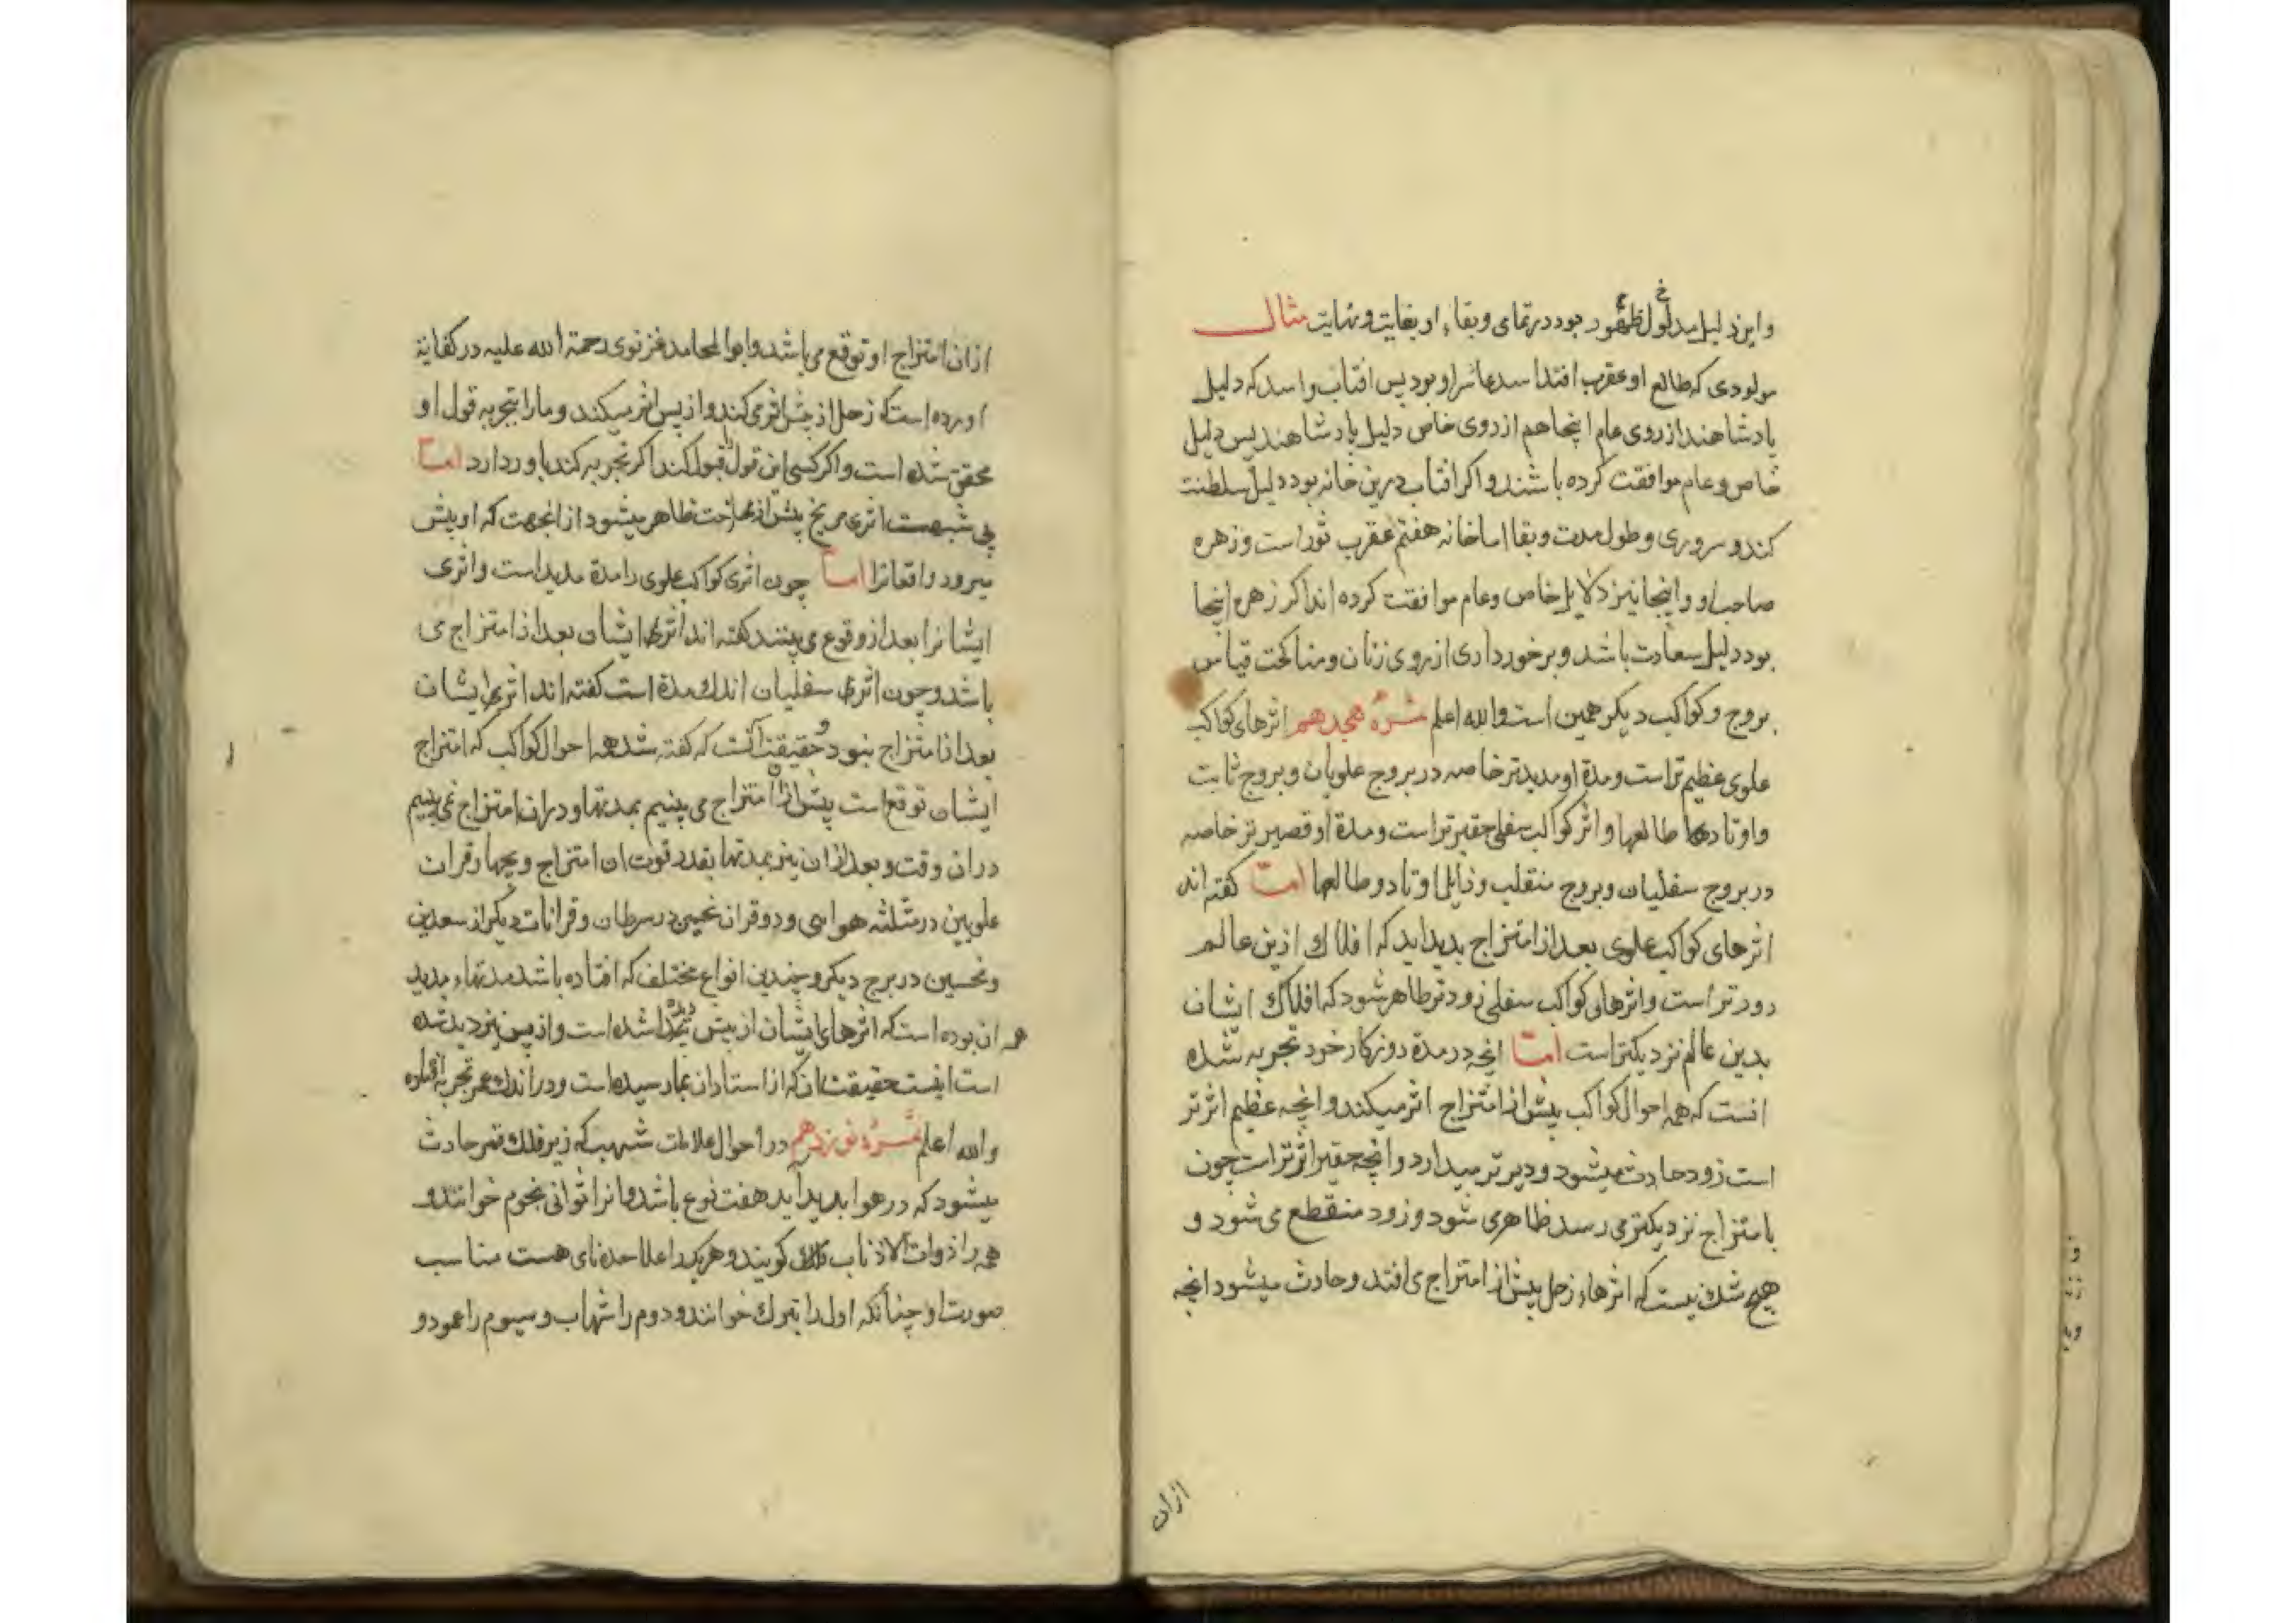 واین دلیل مدلول ظهور بود در تمامی وبقاء او بغایت ونهایت مثال
مولودی که طالع او عقرب افتد اسد عاشر او بود پس افتاب واسد که دلیل
پادشاهند از روی عام اینجا هم از روی خاص دلیل پادشاهند پس دلیل
خاص وعام موافقت کرده باشند واکر افتاب درین خانه بود دلیل سلطنت
کند وسروری وطول مدت وبقا اما خانه هفتم عقرب ثور است وزهره
صاحب او واینجا نیز دلایل خاص وعام موافقت کرده اند اکر زهره اینجا
بود دلیل سعادت باشد وبرخورداری از روی زنان ومناکحت قیاس
بروج وکواکب دیکر همین است والله اعلم ثمره هجدهم اثرهای کواکب
علوی عظیم تر است ومدة او مدیدتر خاصه در بروج علویان وبروج ثابت
واوتادها طالعها واثر کواکب سفلی حقیرتر است ومدة او قصیرتر خاصه
در بروج سفلیان وبروج منقلب وزایل اوتاد وطالعها اما کفته اند
اثرهای کواکب علوی بعد از امتزاج پدید اید که افلاک ازین عالم
دورتر است واثرهای کواکب سفلی زودتر ظاهر شود که افلاک ایشان
بدین عالم نزدیکتر است اما انچه در مدة روزکار خود تجربه شده
انست که همه احوال کواکب پیش از امتزاج اثر میکند وانچه عظیم اثرتر
است زود حادث میشود ودیرتر میدارد وانچه حقیر اثرتر است چون
بامتزاج نزدیکتر می رسد ظاهر می شود وزود منقطع می شود و
هیچ شک نیست که اثرهاء زحل پیش از امتزاج می افتد وحادث میشود انچه
ازان
ازان امتزاج او توقع می باشد وابوالمحامد غزنوی رحمة الله علیه در کفایة
اورده است که زحل از پیش اثر می کند واز پس اثر میکند ومارا بتجربه قول او
محقق شده است واکر کسی این قول را قبول کند اکر تجربه کند باور دارد اما
بی شبهت اثری مریخ پیش از ظاهر میشود از انجهت که او پیش
میرود واقعاترا اما چون اثری کواکب علوی را مدة مدید است واثری
ایشانرا بعد از وقوع می بینند کفته اند اثرهاء ایشان بعد از امتزاج می
باشد وچون اثرهاء سفلیان اندک مدة است کفته اند اثرهاء ایشان
بعد از امتزاج نبود وحقیقت انست که کفته شد همه احوال کواکب که امتزاج
ایشان توقع است پیش از ان امتزاج می بینیم بمدتها ودران امتزاج نمی بینیم
دران وقت وبعد ازان نیز بمدتها بقدر قوت ان امتزاج وقران
علویین در مثلثه هوایی ودو قران نحسین در سرطان وقرانات دیکر از سعدین
ونحسین در برج دیکر وچندین انواع مختلف که افتاده باشد مدتهاء مدید
همه ان بوده است که اثرهای ایشان از پیش پیدا شده است واز پس نیز دیده شده
است اینست حقیقت ان که از استادان بما رسیده است ودر اندک عمر تجربه افتاده
والله اعلم ثمره نوزدهم در احوال علامات شهب که زیر فلک قمر حادث
میشود که در هوا پدید آید هفت نوع باشد وانرا ثوانی نجوم خوانند و
همه را ذوات الاذناب کویند وهر یک را علاحده نامی هست مناسب
صورت او چنانکه اول را نیزک خوانند ودوم را شهاب وسیوم را عمود و